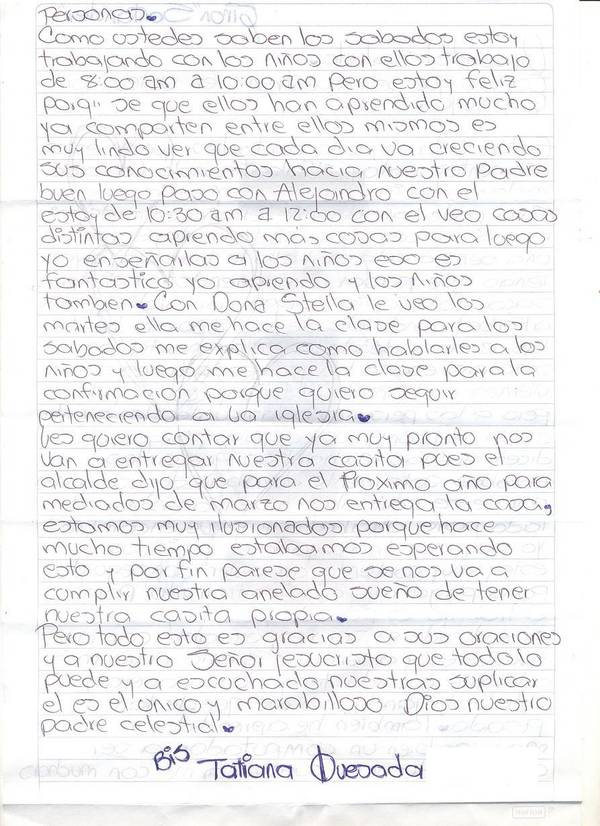 personas.
Como ustedes saben los sabados estoy
trabajando con los niños con ellos trabajo
de 8:00 am a 10:00 am Pero estoy feliz
porq" se que ellos han aprendido mucho
ya comparten entre ellos mismos es
muy lindo ver que cada dia va creciendo
sus conocimientos hacia nuestro Padre
buen luego paso con Alejandro con el
estoy de 10:30 am a 12:00 con el veo cosas
distintas aprendo más cosas para luego
yo enseñarlas a los niños eso es
fantastico yo aprendo y los niños
tambien. Con Dona Stella le veo los
martes ella me hace la clase para los
sabados me explica como hablarles a los
niños y luego me hace la clase para la
confirmacion porque quiero seguir
perteneciendo a la iglesia.
les quiero contar que ya muy pronto nos
van a entregar nuestra casita pues el
alcalde dijo que para el Proximo año para
mediados de marzo nos entrega la casa,
estamos muy ilusionados porque hace
mucho tiempo estabamos esperando
esto y por fin parese que se nos va a
cumplir nuestra anelado sueño de tener
nuestra casita propia.
Pero todo esto es gracias a sus oraciones
y a nuestro Señor jesucristo que todo lo
puede y a escuchado nuestras suplicar
el es el unico y marabilloso Dios nuestro
padre celestial.
Bis Tatiana Quesada